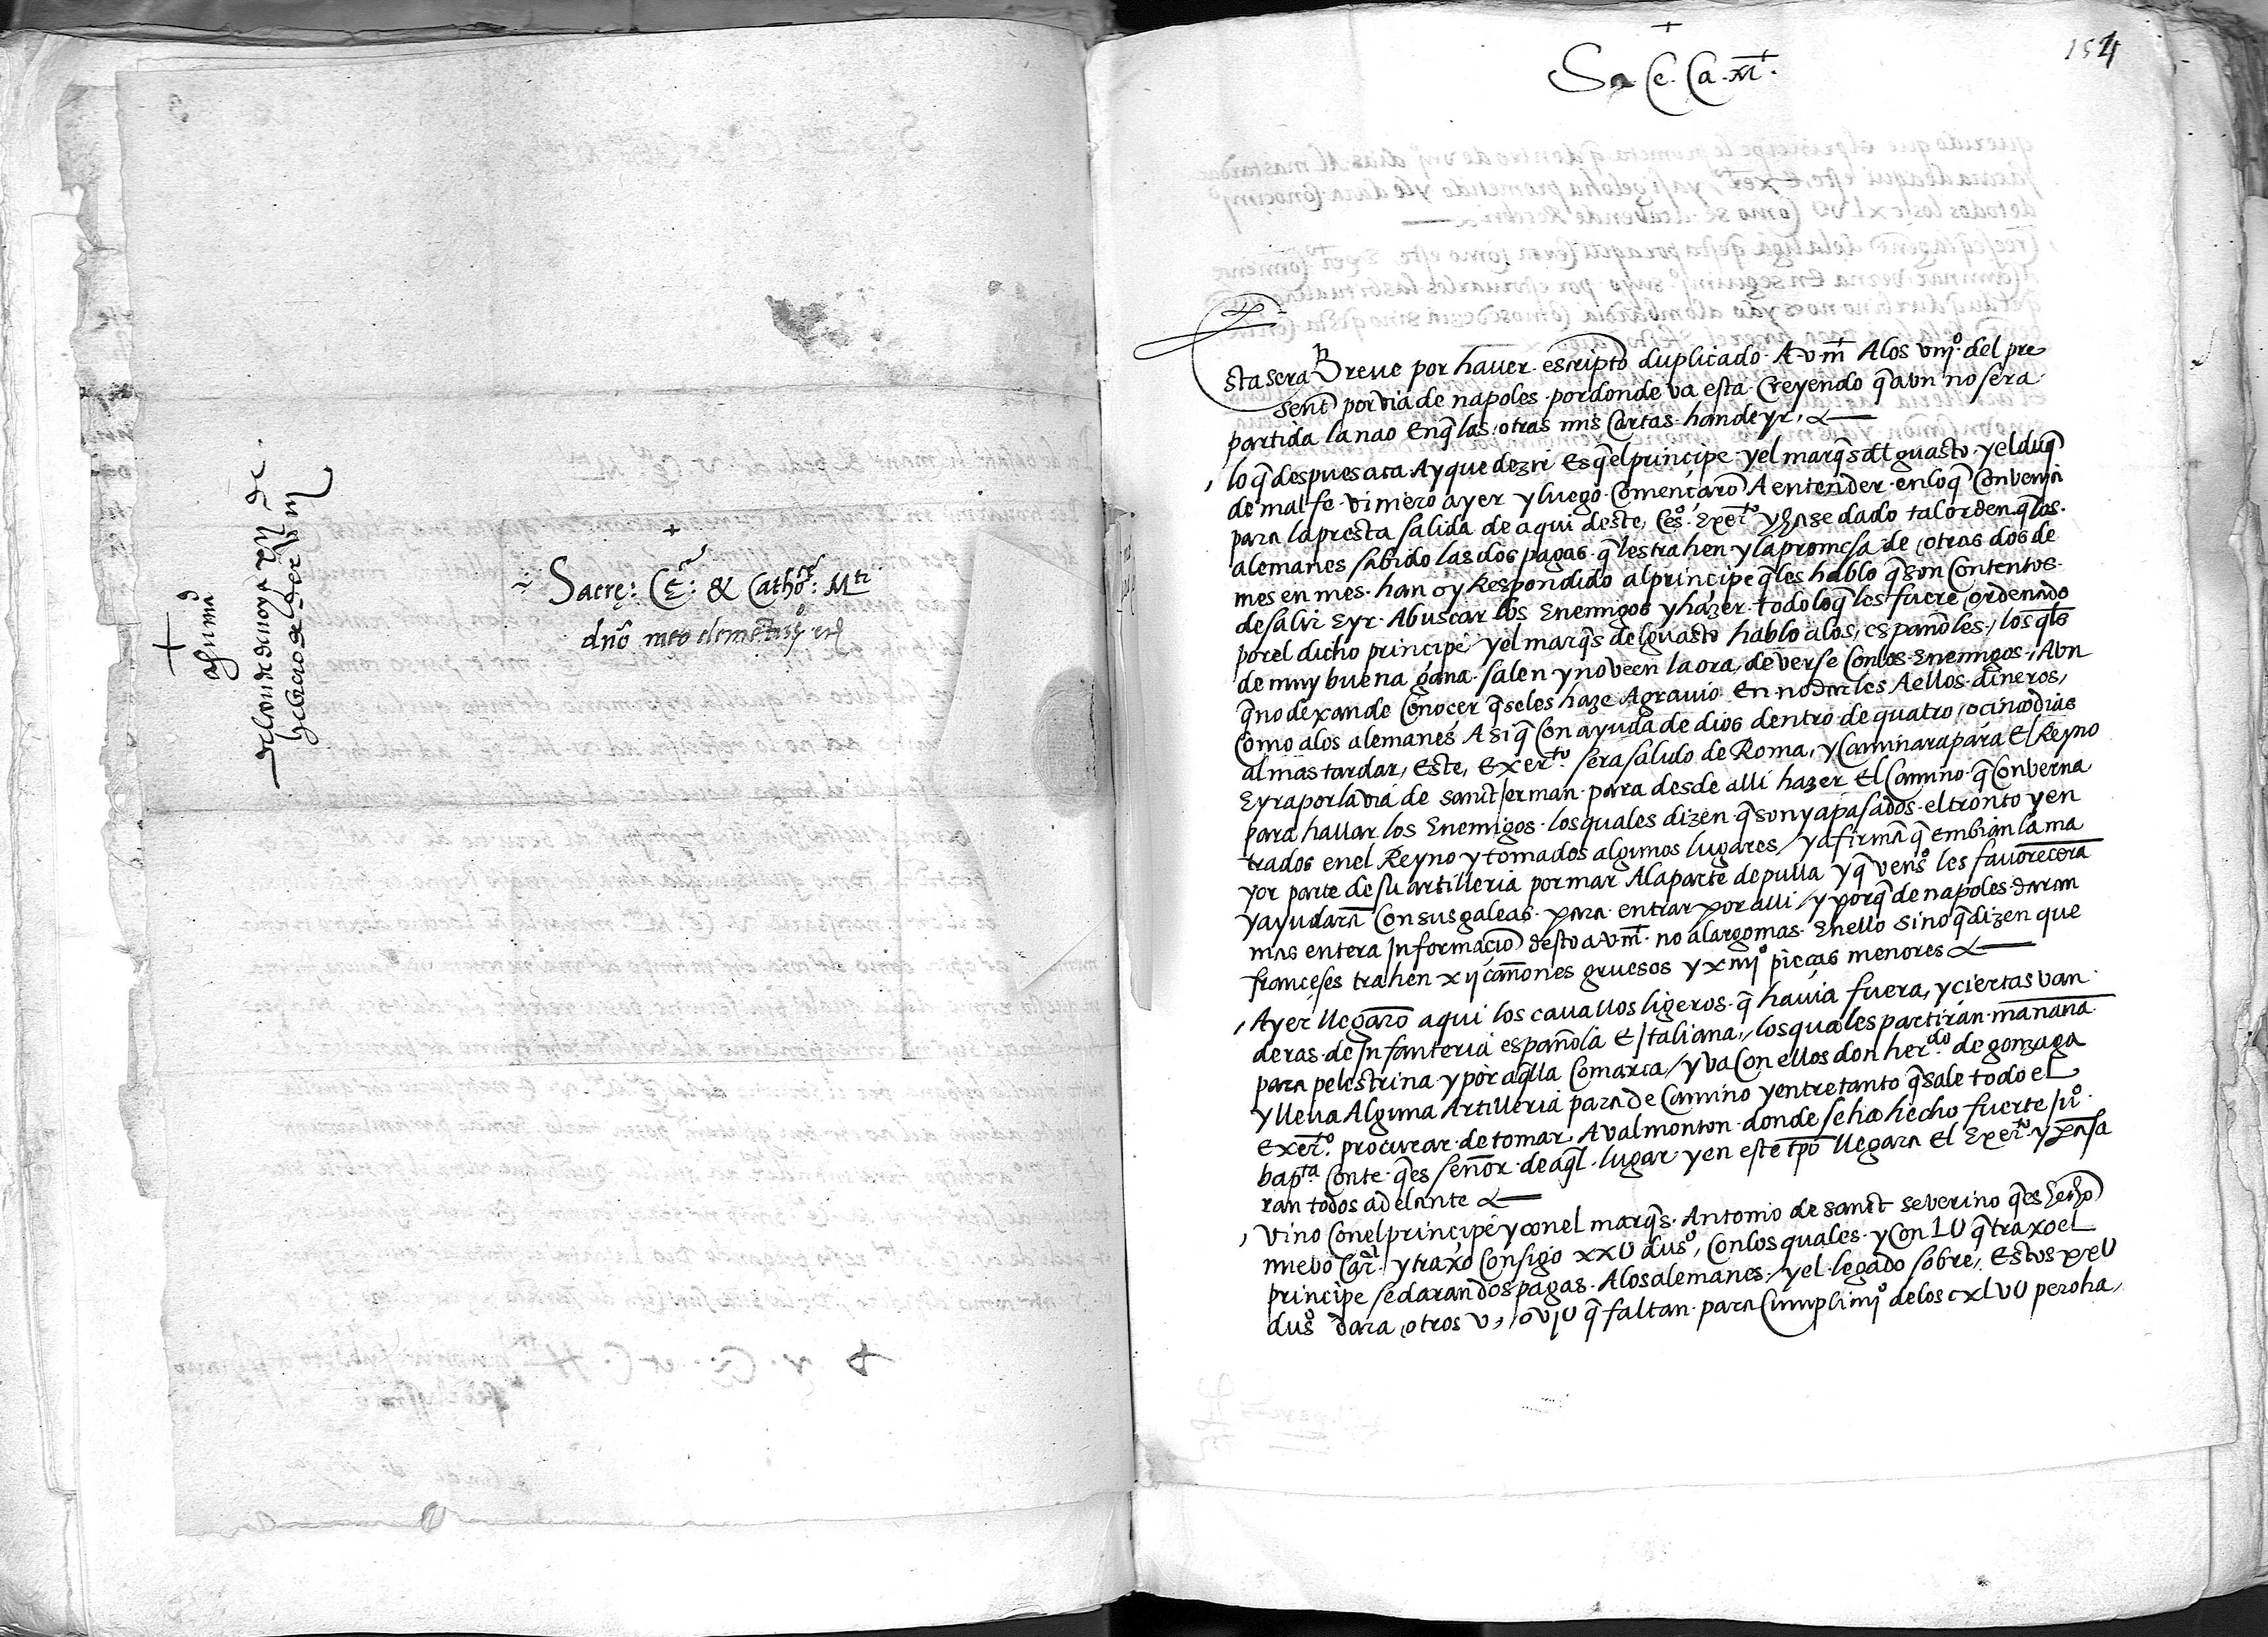 +
Sacre: Ce: & Catho: M^ti
dño meo clementiss
+
154
+
Sa. Ce. Ca. M^t.
Esta sera Breue por hauer escripto duplicado A v m^t Alos viij^o del pre
sente por via de napoles por donde va esta Creyendo q̃ avn no sera
partida la nao Enq̃ las otras mis Cartas han de yr,
lo q̃ despues aca Ay que dezir Es q̃ el principe y el marq̃s del guasto y el duq̃
de malfe vinierõ ayer y luego Començarõ A entender en lo q̃ Convenia
para la presta salida de aqui deste Ces^o Exer^to y hase dado tal orden q̃ los
alemanes sabido las dos pagas q̃ les trahen y la promesa de otras dos de
mes en mes han oy Respondido al principe q̃ les hablo q̃ son Contentos
de salir E yr A buscar los Enemigos y hazer todo lo q̃ les fuere ordenado
por el dicho principe y el marq̃s del guasto hablo a los españoles, los q̃les
de muy buena gana salen y no veen la ora de verse Con los Enemigos, Avn
q̃ no dexan de Conocer q̃ se les haze Agrauio En no darles A ellos dineros,
Como a los alemanes Asi q̃ Con ayuda de dios dentro de quatro o cinco dias
al mas tardar, Este, Exer^to sera salido de Roma, y Caminara para El Reyno
E yra por la via de sanct Jerman para desde alli hazer El Camino q̃ Converna
para hallar los Enemigos los quales dizen q̃ son ya pasados el tronto y en
trados en el Reyno y tomados algunos lugares / y afirmã q̃ embian la ma
yor parte de su artilleria por mar A la parte de pulla y q̃ venº les fauorecera
y ayudarã Con sus galeas para entrar por alli / y porq̃ de napoles daran
mas entera Informaciõ desto a v m^t no alargo mas Enello sino q̃ dizen que
françeses trahen xij cañones gruesos y xiiij^o pieças menores
Ayer llegarõ aqui los cauallos ligeros q̃ hauia fuera, y ciertas van
deras de Infanteria española E Italiana, los quales partiran mañana
para pelestrina y por aq̃lla Comarca / y va Con ellos don her^do de gonzaga
y lleua Alguna Artilleria para de Camino y entretanto q̃ sale todo el
Exer^to procurar de tomar A valmonton donde se ha hecho fuerte Ju^o
bap^ta Conte q̃ es señor de aq̃l lugar y en este tpõ llegara El Exer^to y pasa
ran todos adelante
Vino Con el principe y con el marq̃s Antonio de sanct severino q̃ es
nuevo Car^l y traxo Consigo xxU dus^o, Con los quales y Con LU q̃ traxo el
principe se daran dos pagas A los alemanes / y el legado sobre, Estos
dus^o dara otros v, o vjU q̃ faltan para Cumplimi^o de los cxlvU pero ha